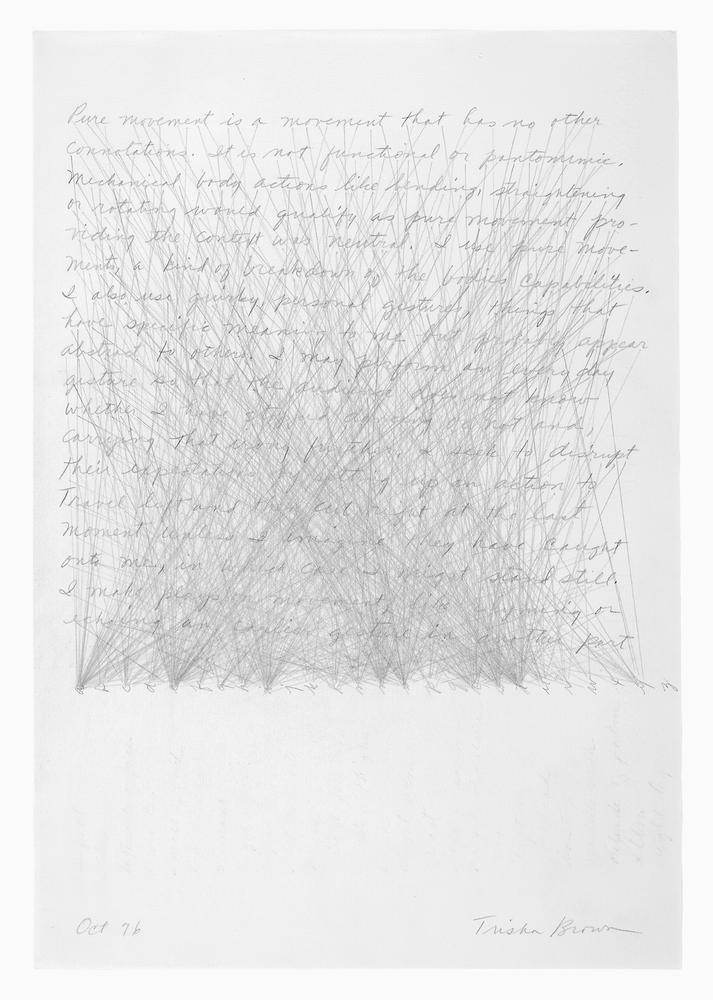 Pure movement is a movement that has no other
connotations. It is not functional or pantomimic.
Mechanical body actions like bending, straightening
or rotating would qualify as pure movement pro-
viding the context was neutral. I use pure move-
ments, a kind of breakdown of the bodies capabilities.
I also use quirky, personal gestures, things that
have specific meaning to me but probably appear
abstract to others. I may perform an everyday
gesture so that the audience does not know
whether I have stopped dancing or not and,
carrying that irony further, I seek to disrupt
their expectations by setting up an action to
Travel left and then cut right at the last
moment unless I imagine they have caught
onto me, in which case I might stand still.
I make plays on movement, like rhyming or
echoing an earlier gesture in another part
Oct 76 Trisha Brown